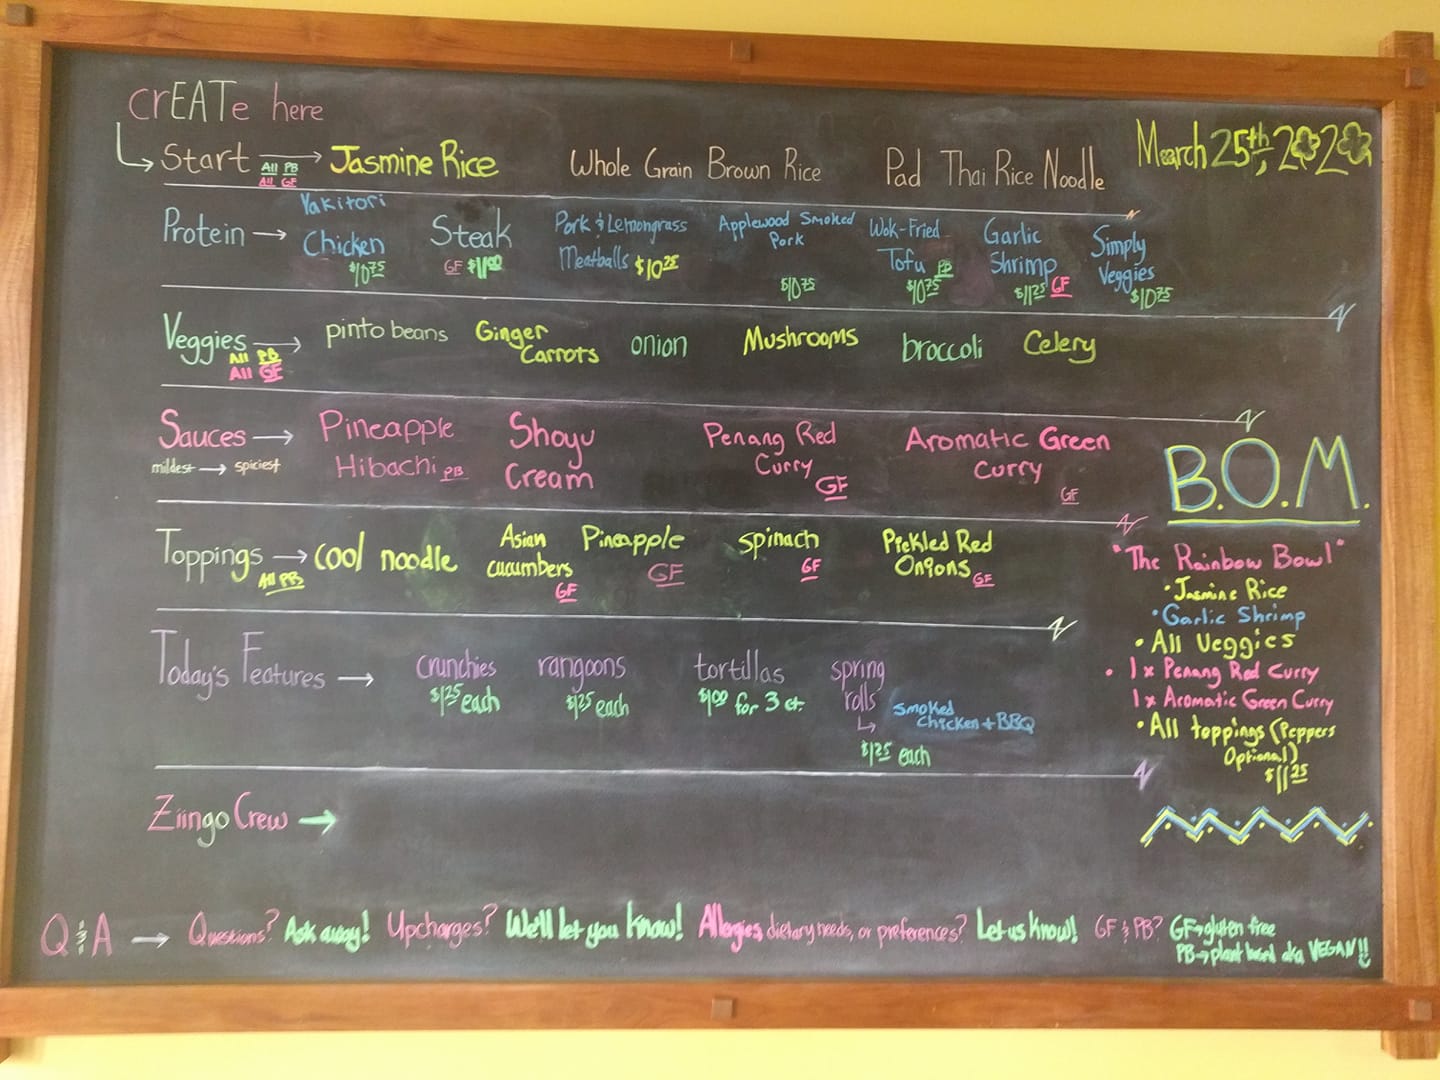 crEATe here
Start → Jasmine Rice Whole Grain Brown Rice Pad Thai Rice Noodle
All PB
All GF
March 25th, 2020
Protein → Yakitori Chicken $10.75
Steak GF $11.00
Pork & Lemongrass
Meatballs $10.25
Applewood Smoked
Pork
$10.75
Wok-Fried
Tofu PB
$10.75
Garlic
Shrimp
$11.25 GF
Simply
Veggies
$10.75
Veggies → pinto beans Ginger Carrots onion Mushrooms broccoli Celery
All PB
All GF
Sauces → Pineapple Hibachi PB
mildest → spiciest
Shoyu
Cream
Penang Red
Curry
GF
Aromatic Green
Curry
GF
Toppings → cool noodle
All PB
Asian
cucumbers
GF
Pineapple
GF
spinach
GF
Pickled Red
Onions GF
Today's Features → crunchies
$1.25 each
rangoons
$1.25 each
tortillas
$1.00 for 3 ct.
spring
rolls
↳ Smoked
Chicken + BBQ
$1.25 each
Ziingo Crew →
B.O.M.
"The Rainbow Bowl"
• Jasmine Rice
• Garlic Shrimp
• All Veggies
• 1x Penang Red Curry
1x Aromatic Green Curry
• All toppings (Peppers
Optional)
$11.25
Q & A → Questions? Ask away! Upcharges? We'll let you know! Allergies, dietary needs, or preferences? Let us know! GF & PB? GF→gluten free
PB→plant based aka VEGAN!!